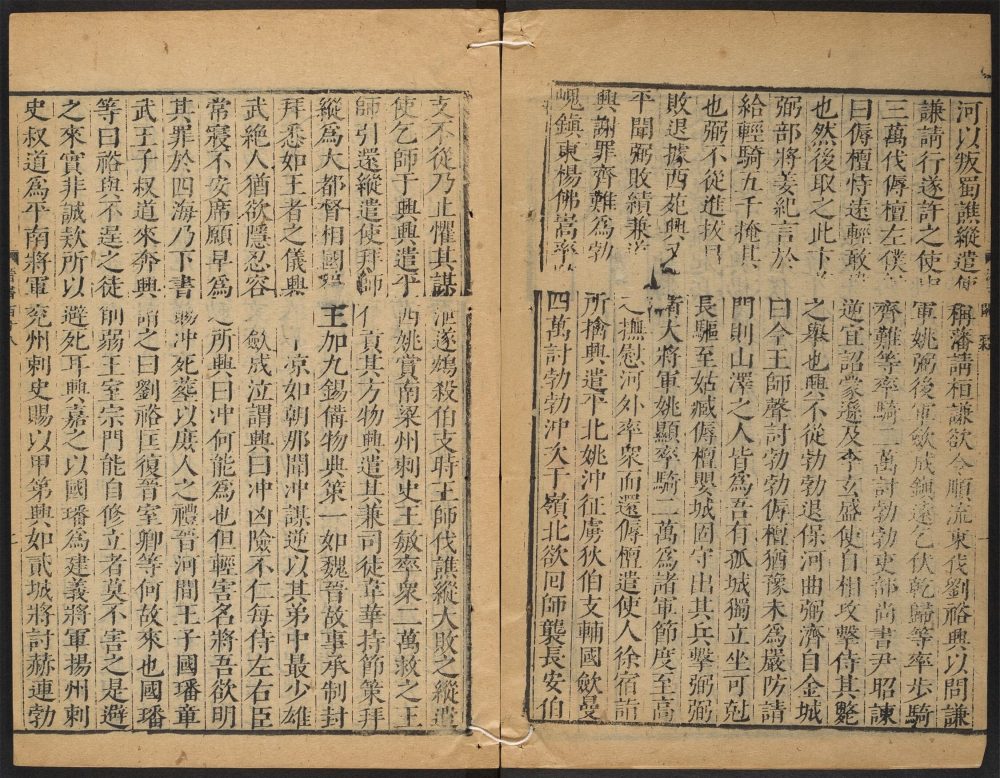 河以叛蜀譙縱遣使稱藩請桓謙欲令順流東伐劉裕興以問謙
謙請行遂許之使中軍姚弼後軍斂成鎭遠乞伏乾歸等率步騎
三萬伐傉檀左僕射齊難等率騎二萬討勃勃吏部尚書尹昭諫
曰傉檀恃遠輕敢違逆宜詔蒙遜及李玄盛使自相攻擊待其斃
也然後取之此卞莊之舉也興不從勃勃退保河曲弼濟自金城
弼部將姜紀言於弼曰今王師聲討勃勃傉檀猶豫未爲嚴防請
給輕騎五千掩其城門則山澤之人皆爲吾有孤城獨立坐可尅
也弼不從進拔昌松長驅至姑臧傉檀嬰城固守出其兵擊弼弼
敗退據西苑興又遣衞大將軍姚顯率騎二萬爲諸軍節度至高
平聞弼敗績兼道赴之撫慰河外率衆而還傉檀遣使人徐宿詣
興謝罪齊難爲勃勃所擒興遣平北姚沖征虜狄伯支輔國斂曼
嵬鎭東楊佛嵩率騎四萬討勃勃沖次于嶺北欲回師襲長安伯
支不從乃止懼其謀泄遂鴆殺伯支時王師伐譙縱大敗之縱遣
使乞師于興興遣平西姚賞南梁州刺史王敏率衆二萬救之王
師引還縱遣使拜師仍貢其方物興遣其兼司徒韋華持節策拜
縱爲大都督相國蜀王加九錫備物典策一如魏晉故事承制封
拜悉如王者之儀興自平涼如朝那聞沖謀逆以其弟中最少雄
武絕人猶欲隱忍容之斂成泣謂興曰沖凶險不仁每侍左右臣
常寢不安席願早爲之所興曰沖何能爲也但輕害名將吾欲明
其罪於四海乃下書賜沖死葬以庶人之禮晉河間王子國璠章
武王子叔道來奔興謂之曰劉裕匡復晉室卿等何故來也國璠
等曰裕與不逞之徒削弱王室宗門能自修立者莫不害之是避
之來實非誠款所以避死耳興嘉之以國璠爲建義將軍揚州刺
史叔道爲平南將軍兗州刺史賜以甲第興如貳城將討赫連勃